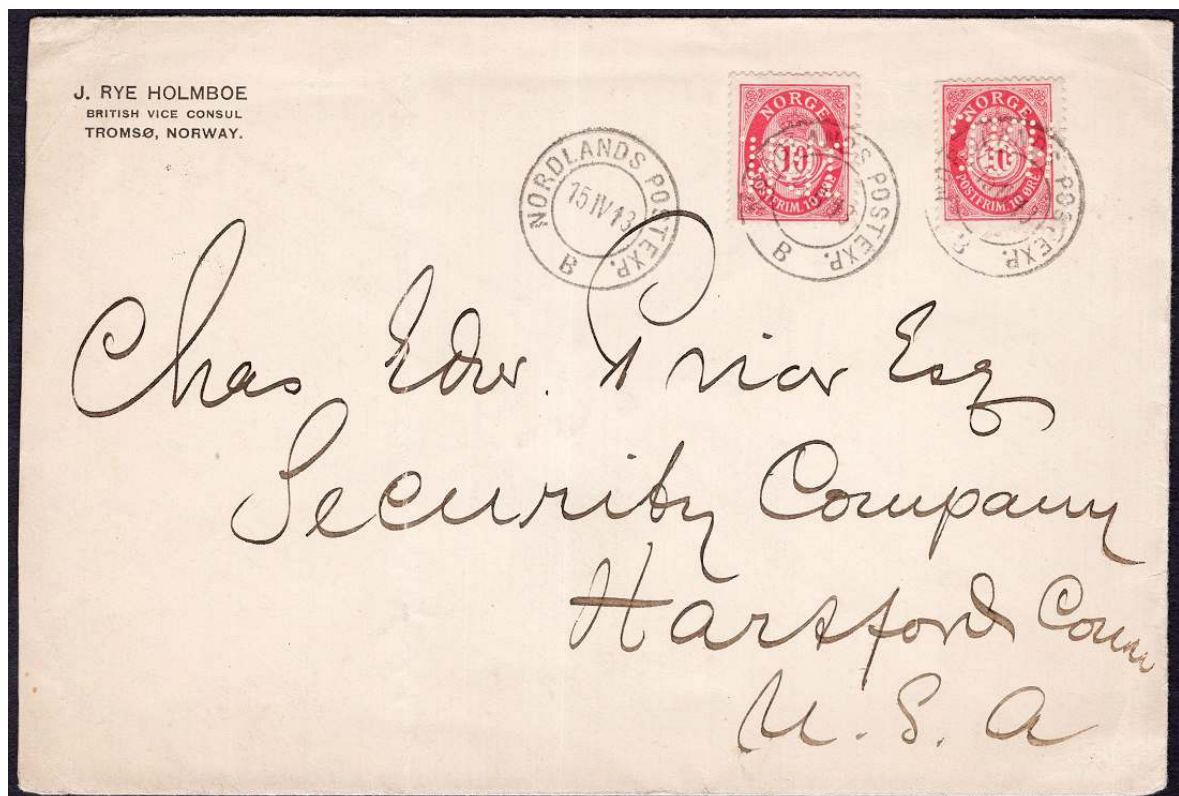 J. RYE HOLMBOE
BRITISH VICE CONSUL
TROMSØ, NORWAY.
NORDLANDS POSTEXP. B
15 IV 13
NORGE
10
POSTFRIM. 10 ØRE
POSTEXP. B
NORGE
POSTFRIM. 10 ØRE
POSTEXP. B
Chas Edw. Prior Esq
Security Company
Hartford Conn
U. S. A